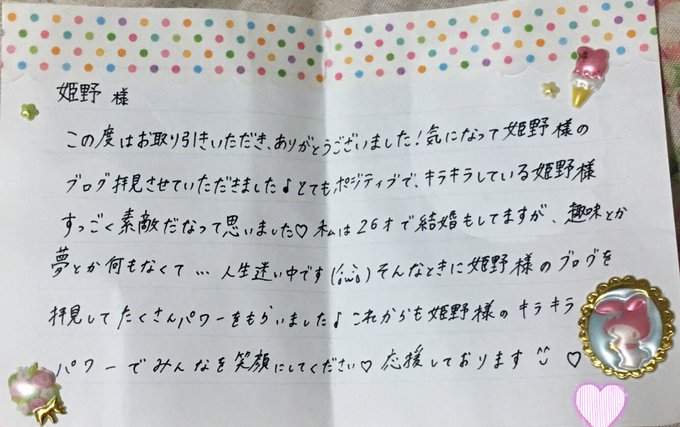 姫野 様
この度はお取り引きいただき、ありがとうございました！気になって姫野様の
ブログ拝見させていただきました♪とてもポジティブで、キラキラしている姫野様
すっごく素敵だなって思いました♡ 私は26才で結婚もしてますが、趣味とか
夢とか何もなくて … 人生迷い中です(;ω;) そんなときに姫野様のブログを
拝見してたくさんパワーをもらいました♪ これからも姫野様のキラキラ
パワーでみんなを笑顔にしてください♡ 応援しております ^^ ♡